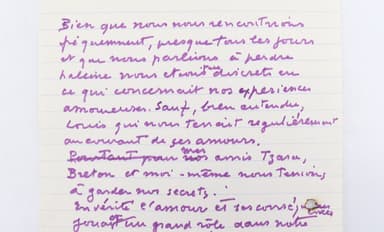 Bien que nous nous rencontrions
fréquemment, presque tous les jours
et que nous parlions à perdre
haleine nous étions très discrets en
ce qui concernait nos expériences
amoureuses. Sauf, bien entendu,
Louis qui nous tenait régulièrement
au courant de ses amours.
Pourtant pour nos mes amis Tzara,
Breton et moi-même nous tenions
à garder nos secrets.
En vérité l'amour et ses consé-
jouait un grand rôle dans notre